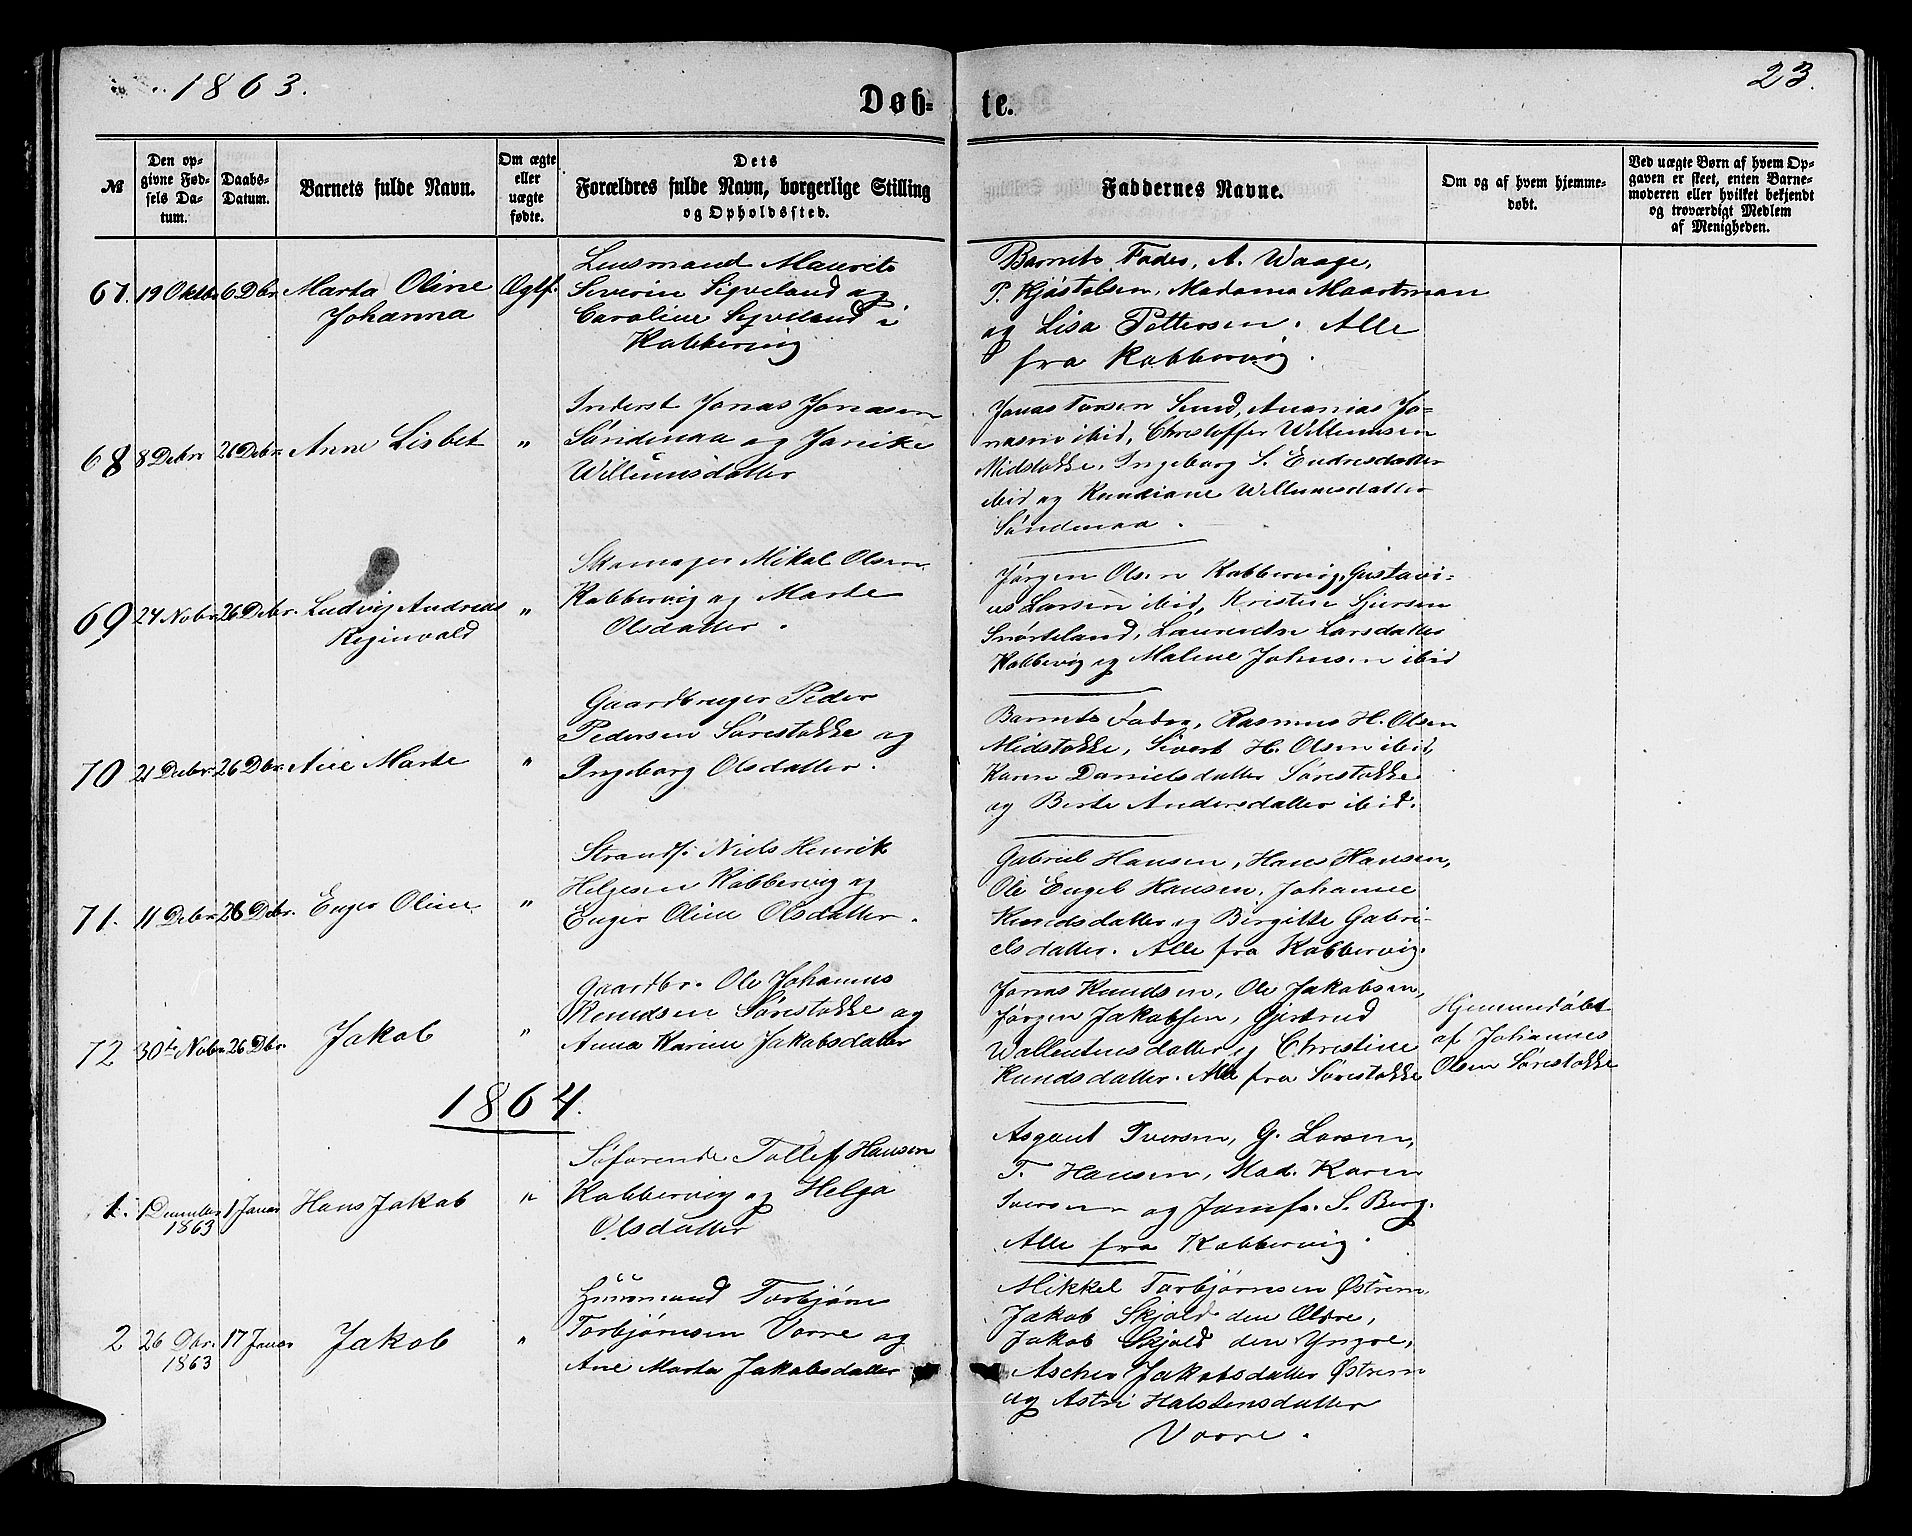 1863.
23.
Døb-
te.
№
Den op-
givne Fød-
sels Da-
tum.
Daabs-
Datum.
Barnets fulde Navn.
Om ægte
eller
uægte
fødte.
Dets
Forældres fulde Navn, borgerlige Stilling
og Opholdssted.
Faddernes Navne.
Om og af hvem hjemme-
døbt.
Ved uægte Børn af hvem Op-
gaven er skeet, enten Barne-
moderen eller hvilket bekjendt
og troværdigt Medlem
af Menigheden.
67. 19 Oktbr 6 Dbr. Marta Oline
Johanna
Ægtf.
Lensmand Maurits
Severin Sigveland og
Caroline Sigveland i
Kobbervig
Barnets Fader, A. Waage,
P. Kjøstolsen, Madama Maartman
og Lisa Pettersen. Alle
fra Kobbervig.
68 8 Debr 26 Debr. Anne Lisbet "
Inderst Jonas Jonasen
Søndenaa og Janike
Willumsdatter
Jonas Torsen Sund, Ananias Jo-
nasen ibid, Christoffer Willumsen
Midstokke, Ingeborg S. Endresdatter
ibid og Kundiane Willumsdatter
Søndenaa.
69 24 Nobr 26 Debr. Ludvig Andreas
Reginvald
"
Skomager Mikal Olsen
Kobbervig og Marte
Olsdatter.
Jørgen Olsen Kobbervig, Gustavi-
us Larsen ibid, Kristine Sjursen
Snørteland, Laurentse Larsdatter
Kobbevig og Malene Johnsen ibid
70 21 Debr. 26 Dbr. Ane Marte "
Gaardbruger Peder
Pedersen Sørestokke og
Ingeborg Olsdatter.
Barnets Fader, Rasmus H. Olsen
Midstokke, Sivert H. Olsen ibid,
Karen Danielsdatter Sørestokke
og Birte Andersdatter ibid.
71. 11 Debr. 26 Debr. Enger Oline "
Strands. Niels Henrik
Helgesen Kobbervig og
Enger Oline Olsdatter.
Gabriel Hansen, Hans Hansen,
Ole Engel Hansen, Johanne
Knudsdatter og Birgitte Gabri-
elsdatter. Alle fra Kobbervig.
72 30te Nobr. 26 Dbr. Jakob "
Gaardbr. Ole Johannes
Knudsen Sørestokke og
Anna Karine Jakobsdatter
Jonas Knudsen, Ole Jakobsen,
Jørgen Jakobsen, Gjertrud
Wallentinsdatter og Christine
Knudsdatter. Alle fra Sørestokke
Hjemmedøbt
af Johannes
Olsen Sørestokke
1864.
1. 1 December
1863
1 Januar Hans Jakob "
Søfarende Tollef Hansen
Kobbervig og Helga
Olsdatter
Asgaut Iversen, G. Larsen,
T. Hansen, Mad. Karen
Iversen og Jomfr. S. Berg.
Alle fra Kobbervig.
2 26 Dbr.
1863
17 Januar Jakob "
Huusmand Torbjørn
Torbjørnsen Vorre og
Ane Marta Jakobsdatter
Mikkel Torbjørnsen Østrem
Jakob Skjold den Ældre,
Jakob Skjold den Yngre,
Ascher Jakobsdatter Østrem
og Astri Halstensdatter
Vorre.